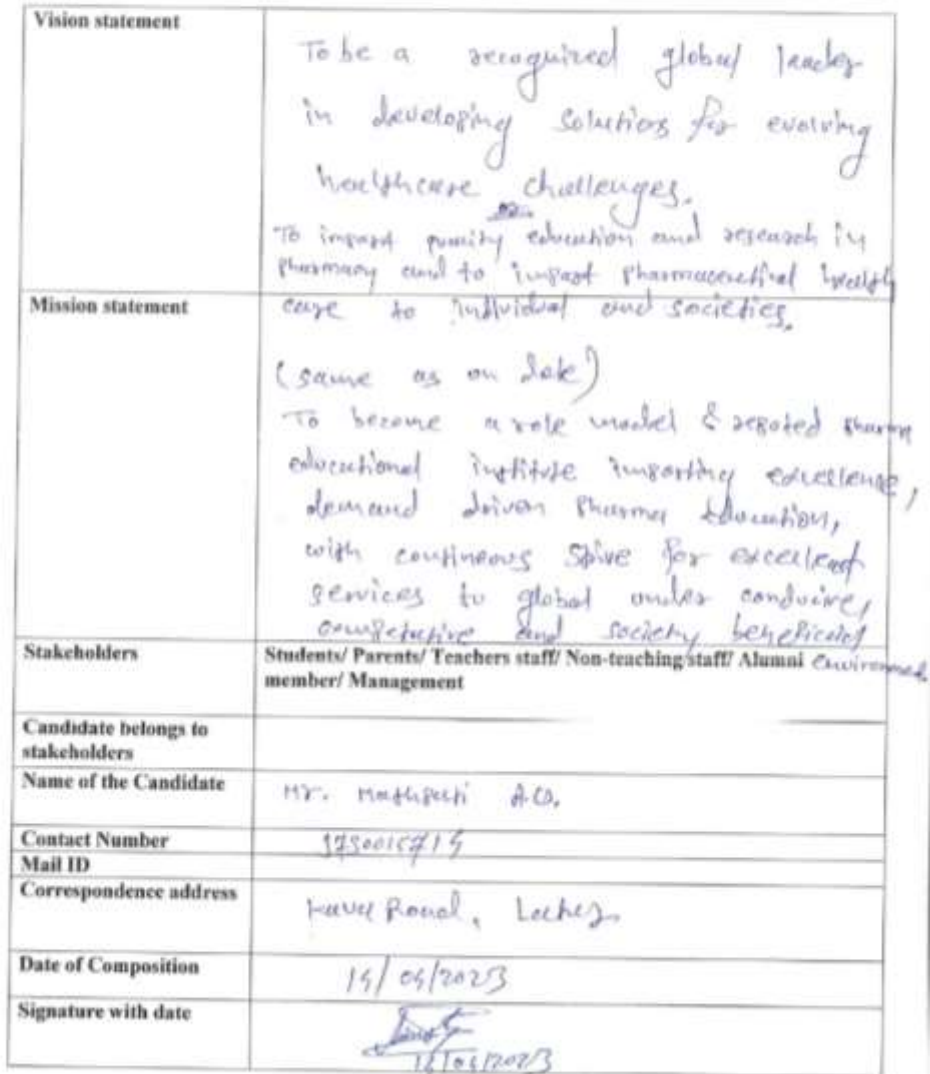 Vision statement
To be a recognized global leader
in developing solutions for evolving
healthcare challenges.
To impart quality education and research in
pharmacy and to impart pharmaceutical health
Mission statement
care to individual and societies.
(same as on date)
To become a role model & reputed pharma
educational institute imparting excellence,
demand driven pharma education,
with continuous strive for excellent
services to global under conducive,
competative and society beneficial
Stakeholders
Students/ Parents/ Teachers staff/ Non-teaching staff/ Alumni environment
member/ Management
Candidate belongs to
stakeholders
Name of the Candidate
Mr.
Contact Number
Mail ID
Correspondence address
Road,
Date of Composition
/2023
Signature with date
/2023